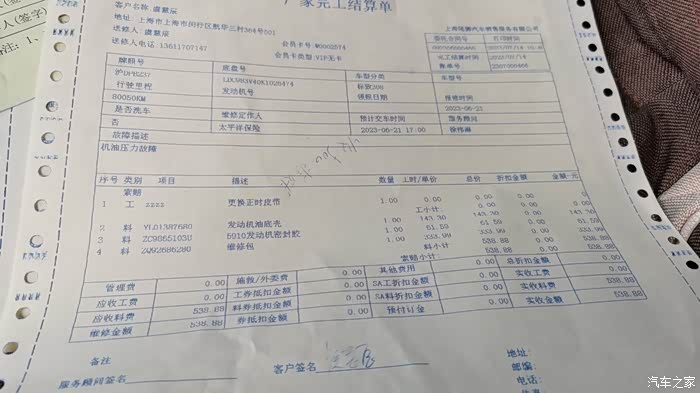 厂家完工结算单
客户名称: 虞慧辰
地址: 上海市上海市闵行区航华三村364号501
上海 汽车销售服务有限公司
送修人: 虞慧辰
会员卡号: M0002574
委托合同号 打印时间
送修人电话: 13611707147
会员卡类型:VIP无卡
完工结算时间 2023/07/14
账单号 2307200466
牌照号 底盘号 车型分类 车型号
沪DPG237 标致308
行驶里程 发动机号 领照日期 报修时间
80050KM 2023-06-21
是否洗车 维修定作人 预计交车时间 服务顾问
否 太平洋保险 2023-06-21 17:00 徐伟琳
故障描述
机油压力故障
序号 类别 项目 描述 数量 工时/单价 总价 折扣金额 金额-元
索赔
1 工 ZZZZ 更换正时皮带 1.00 0.00 0.00 0.00 0.00
工小计: 0.00 0.00 0.00
2 料 YL01387680 发动机油底壳 1.00 143.30 143.30 0.00 143.30
3 料 ZC9865103U 5910发动机密封胶 1.00 61.59 61.59 0.00 61.59
4 料 2Q92686280 维修包 1.00 333.99 333.99 0.00 333.99
料小计 538.88 0.00 538.88
索赔小计: 538.88 0.00 538.88
管理费 0.00 施救/外类费 0.00 其他费用 0.00 总折扣金额 0.00
应收工费 0.00 工券抵扣金额 0.00 SA工折扣金额 0.00 实收工费 0.00
应收料费 538.88 料券抵扣金额 0.00 SA料折扣金额 0.00 实收料费 538.88
维修金额 538.88 券抵扣金额 0.00 预付订金 0.00 实收金额 538.88
备注
服务顾问签名
客户签名
地址:
邮编:
电话:
汽车之家